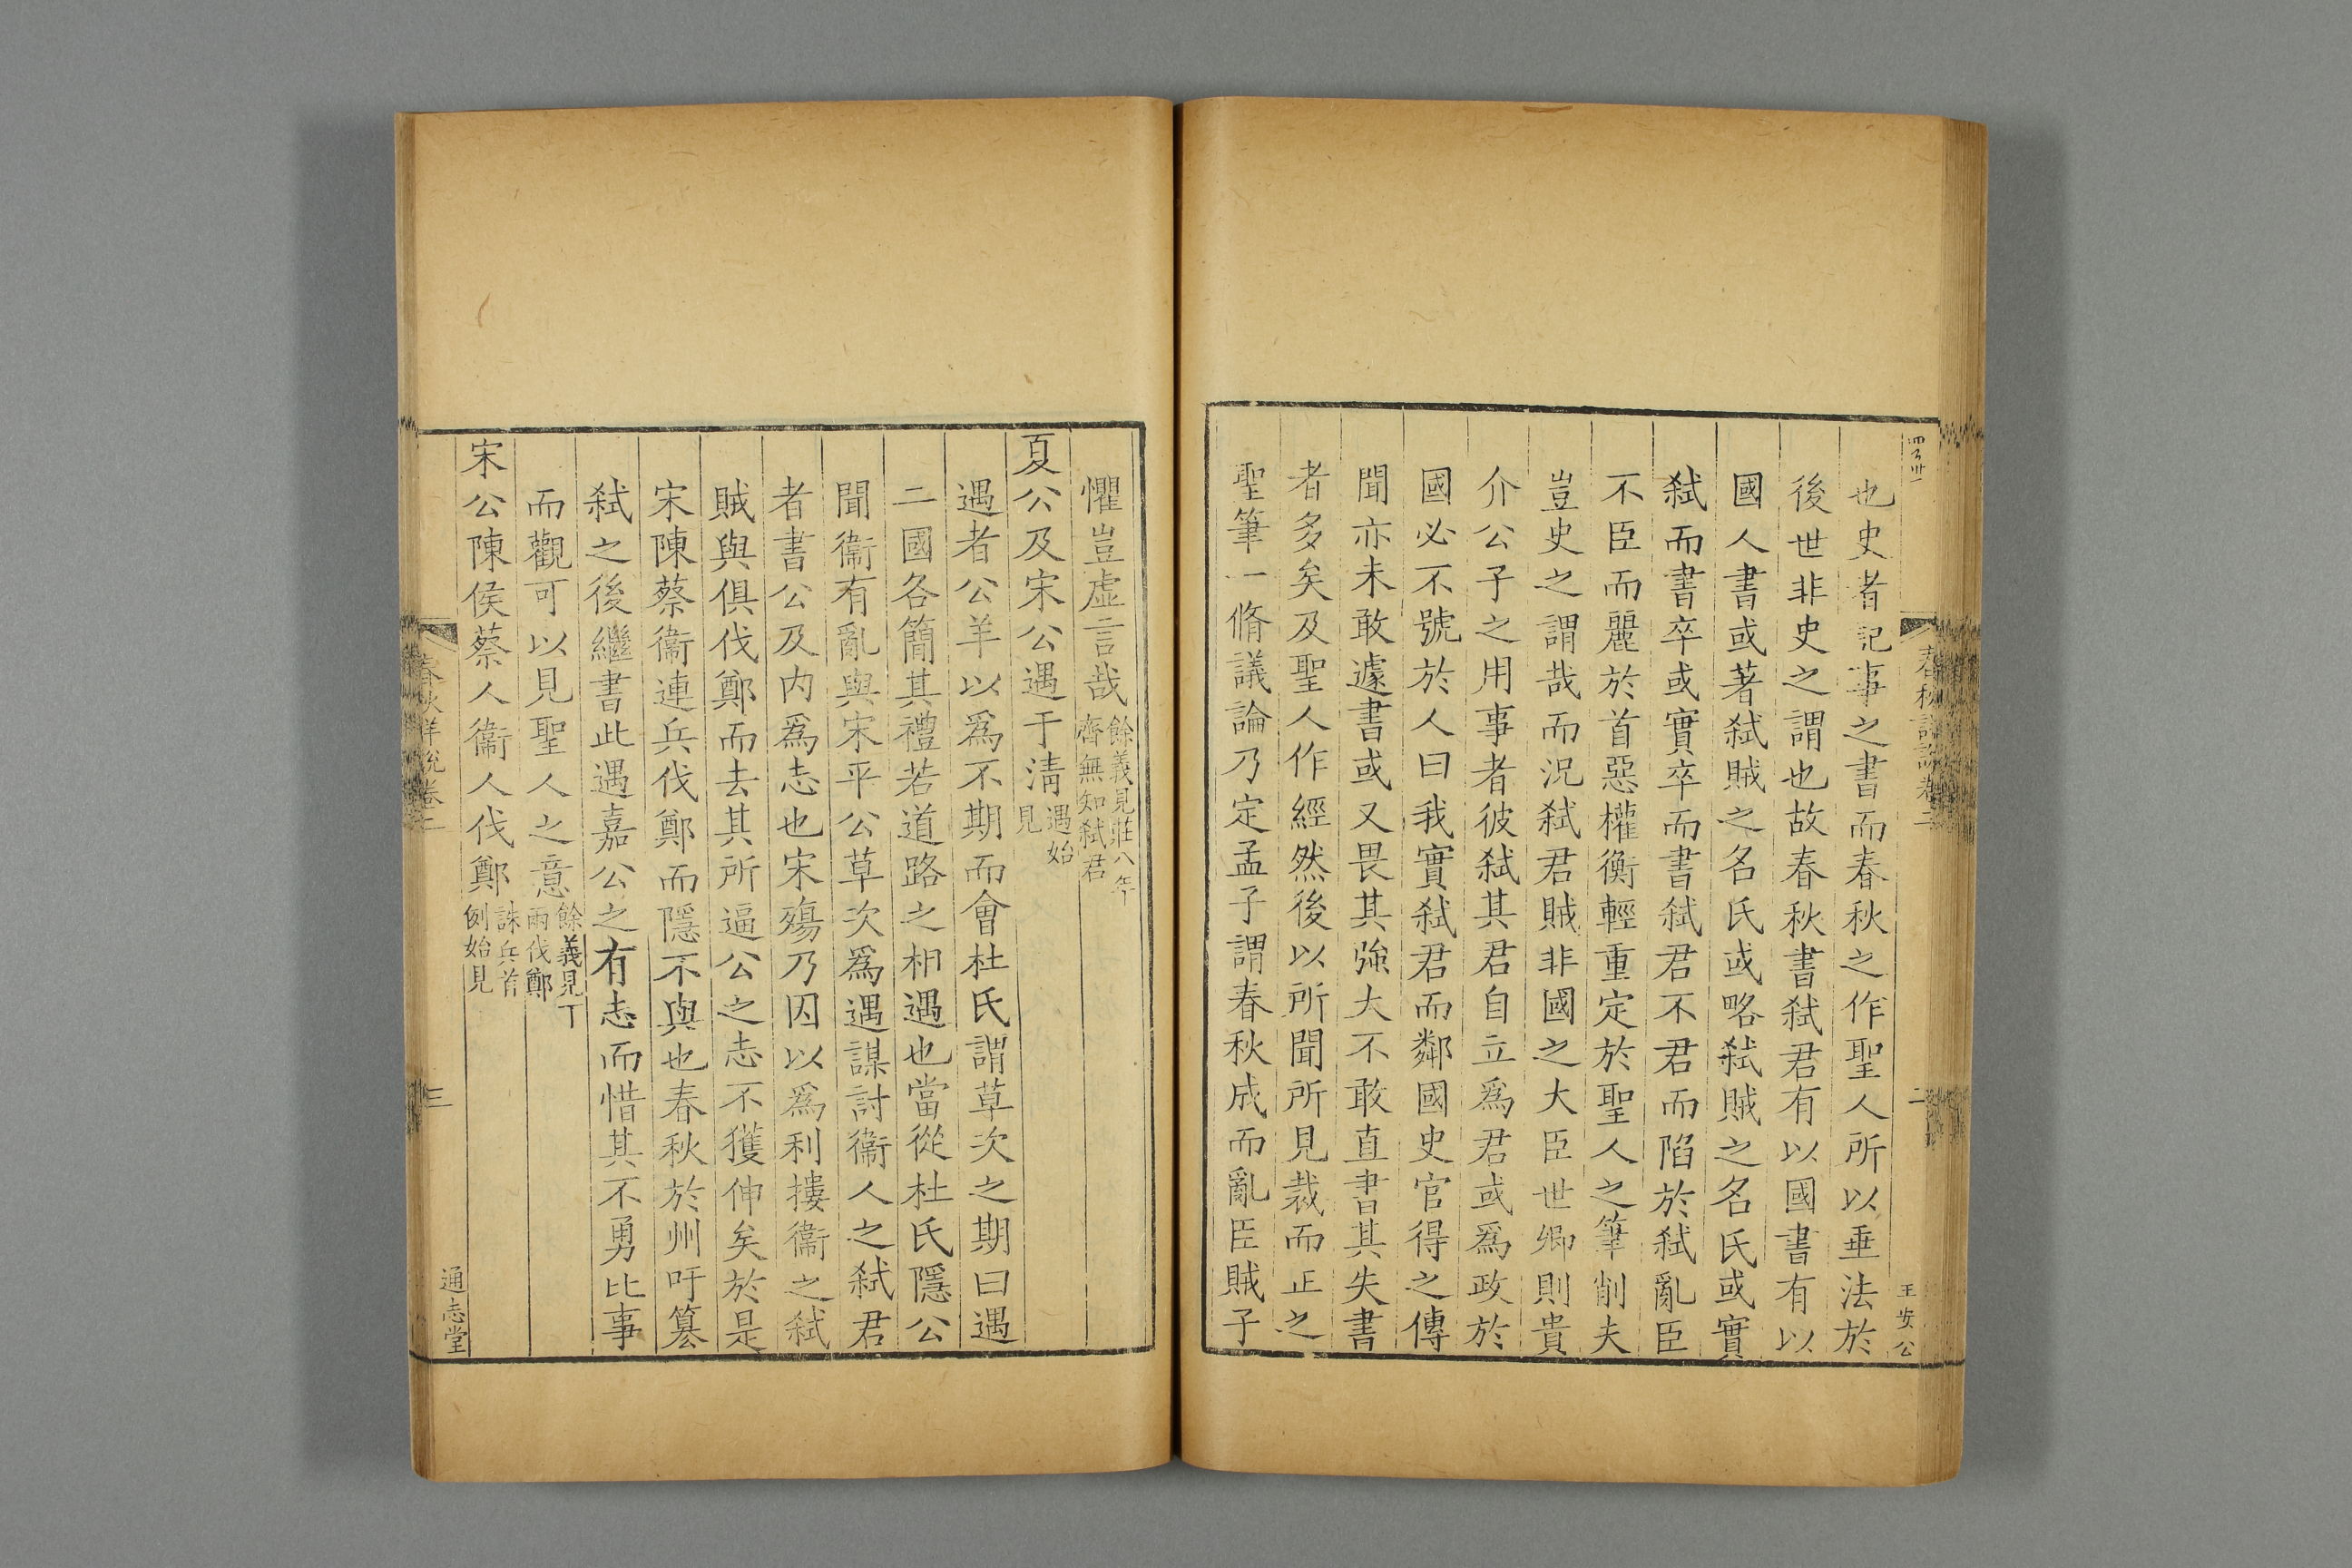 春秋詳說卷二
二
王安公
也史者記事之書而春秋之作聖人所以垂法於
後世非史之謂也故春秋書弑君有以國書有以
國人書或著弑賊之名氏或略弑賊之名氏或實
弑而書卒或實卒而書弑君不君而陷於弑亂臣
不臣而麗於首惡權衡輕重定於聖人之筆削夫
豈史之謂哉而況弑君賊非國之大臣世卿則貴
介公子之用事者彼弑其君自立爲君或爲政於
國必不號於人曰我實弑君而鄰國史官得之傳
聞亦未敢遽書或又畏其強大不敢直書其失書
者多矣及聖人作經然後以所聞所見裁而正之
聖筆一脩議論乃定孟子謂春秋成而亂臣賊子
懼豈虛言哉餘義見莊八年齊無知弑君
夏公及宋公遇于清遇始見
遇者公羊以爲不期而會杜氏謂草次之期曰遇
二國各簡其禮若道路之相遇也當從杜氏隱公
聞衞有亂與宋平公草次爲遇謀討衞人之弑君
者書公及内爲志也宋殤乃因以爲利摟衞之弑
賊與俱伐鄭而去其所逼公之志不獲伸矣於是
宋陳蔡衞連兵伐鄭而隱不與也春秋於州吁簒
弑之後繼書此遇嘉公之有志而惜其不勇比事
而觀可以見聖人之意餘義見下兩伐鄭
宋公陳侯蔡人衞人伐鄭誅兵首例始見
春秋詳說卷二
三
通志堂